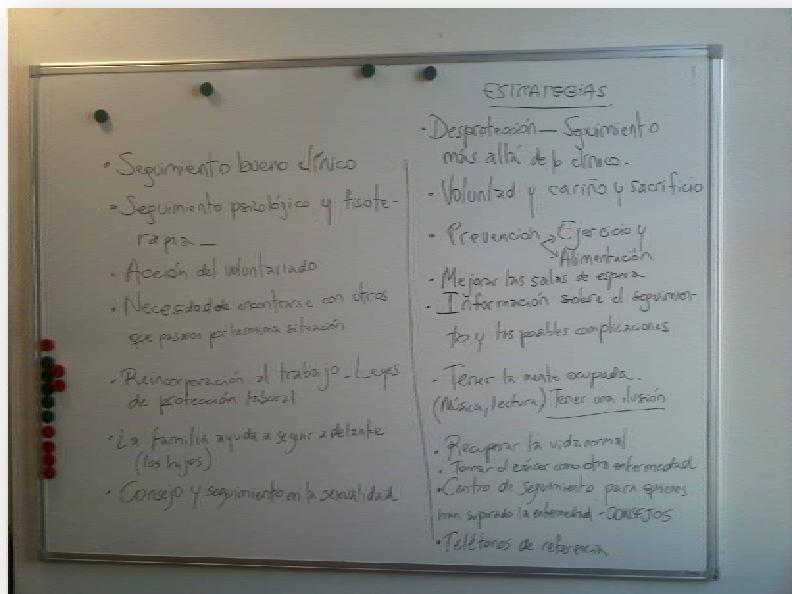 • Seguimiento bueno clínico
• Seguimiento psicológico y fisiote-
rapia –
• Acción del voluntariado
• Necesidad de encontrarse con otros
que pasaron por la misma situación
• Reincorporación al trabajo – Leyes
de protección laboral
• La familia ayuda a seguir adelante
(los hijos)
• Consejo y seguimiento en la sexualidad
ESTRATEGIAS
• Desprotección – Seguimiento
más allá de lo clínico.
• Voluntad y cariño y sacrificio
• Prevención → Ejercicio y
→ Alimentación
• Mejorar las salas de espera
• Información sobre el seguimien-
to y las posibles complicaciones
• Tener la mente ocupada.
(Música, lectura) Tener una ilusión
• Recuperar la vida normal
• Tomar el cáncer como otra enfermedad
• Centro de seguimiento para quienes
han superado la enfermedad - CONSEJOS
• Teléfonos de referencia